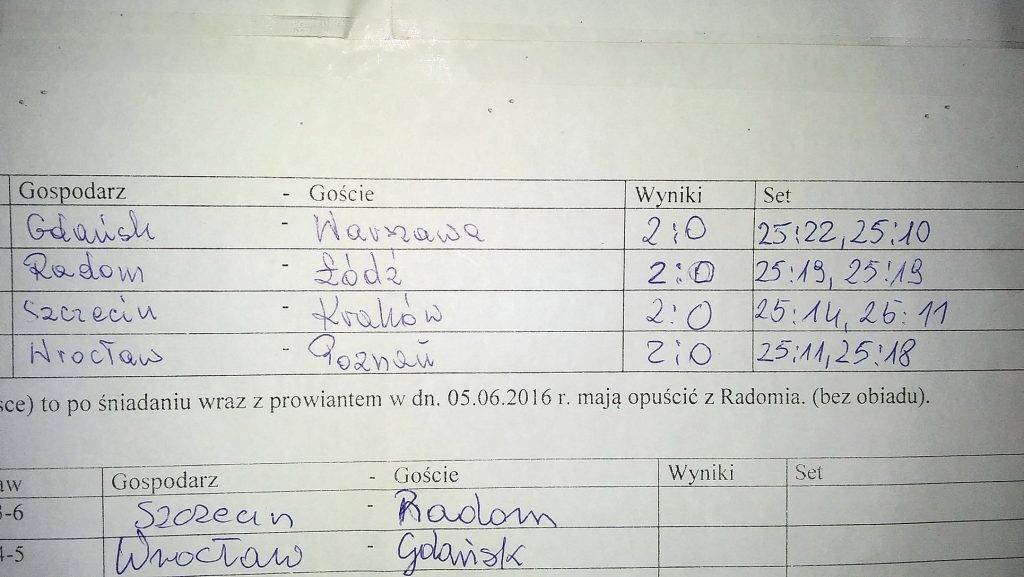 Gospodarz - Goście Wyniki Set
Gdańsk - Warszawa 2:0 25:22, 25:10
Radom - Łódź 2:0 25:19, 25:19
Szczecin - Kraków 2:0 25:14, 25:11
Wrocław - Poznań 2:0 25:11, 25:18
sce) to po śniadaniu wraz z prowiantem w dn. 05.06.2016 r. mają opuścić z Radomia. (bez obiadu).
aw Gospodarz - Goście Wyniki Set
3-6 Szczecin - Radom
4-5 Wrocław - Gdańsk